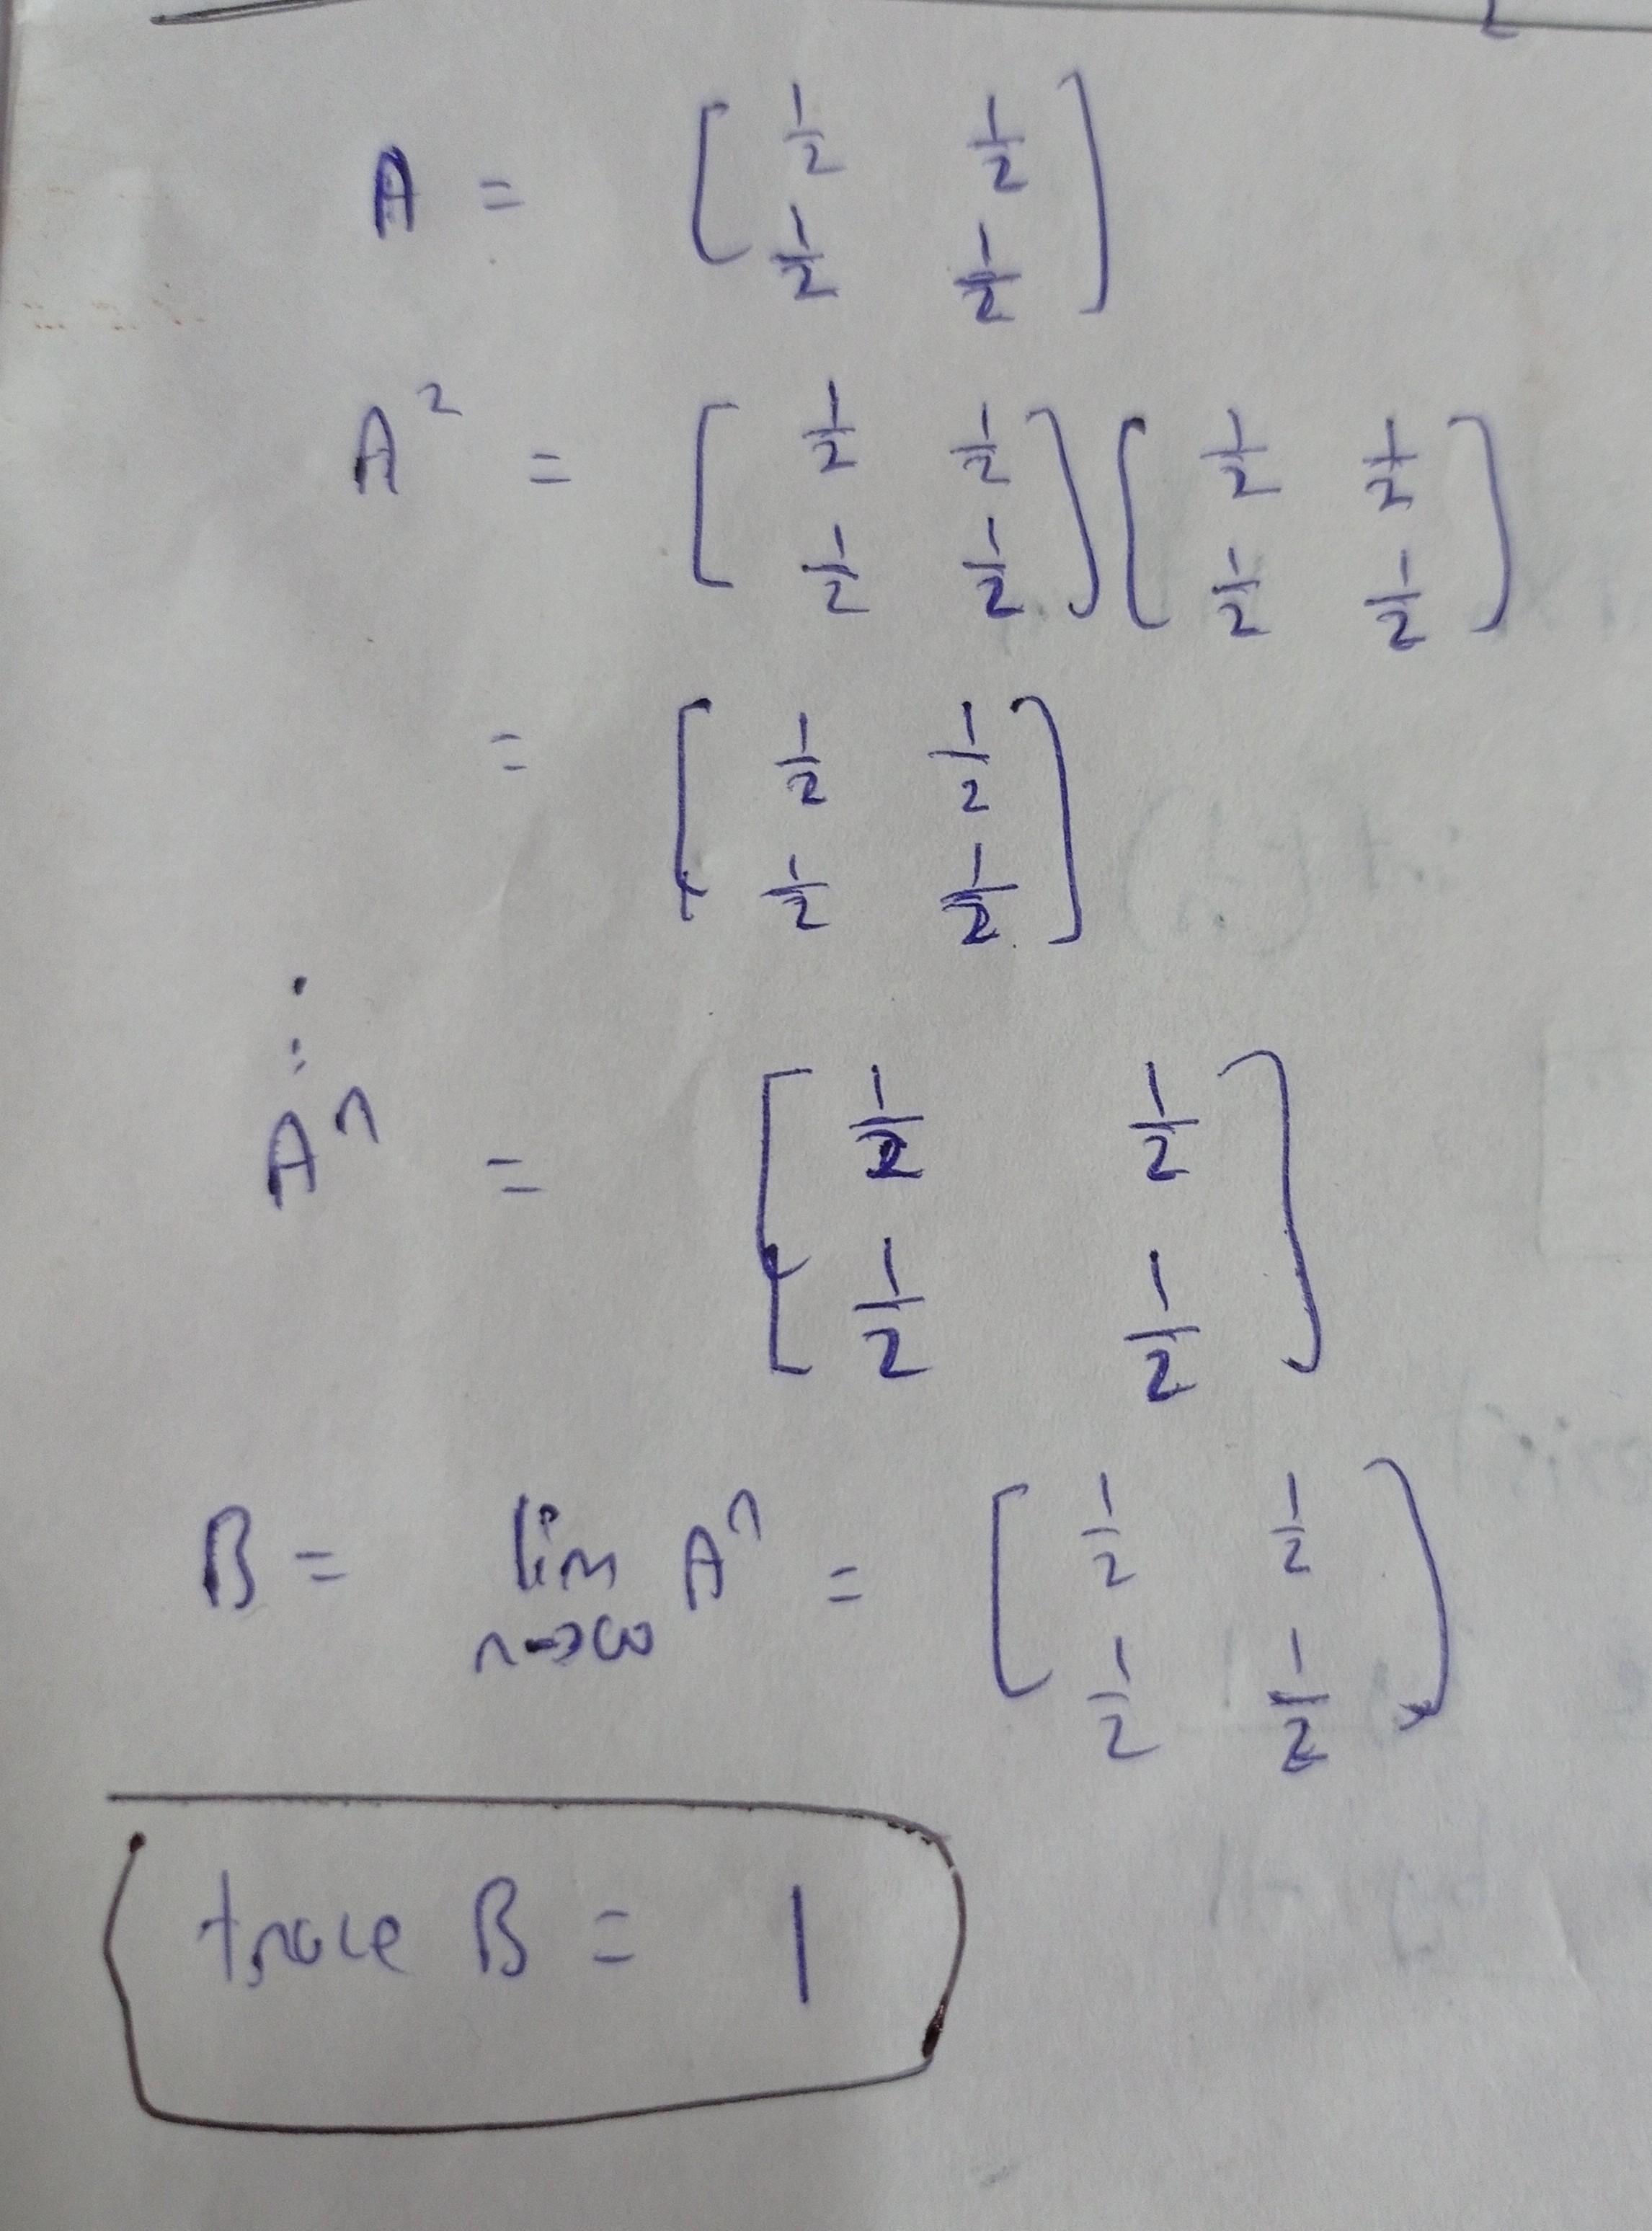 A = [ 1/2 1/2
1/2 1/2 ]
A² = [ 1/2 1/2
1/2 1/2 ] [ 1/2 1/2
1/2 1/2 ]
= [ 1/2 1/2
1/2 1/2 ]
⋮
Aⁿ = [ 1/2 1/2
1/2 1/2 ]
B = lim n→∞ Aⁿ = [ 1/2 1/2
1/2 1/2 ]
trace B = 1